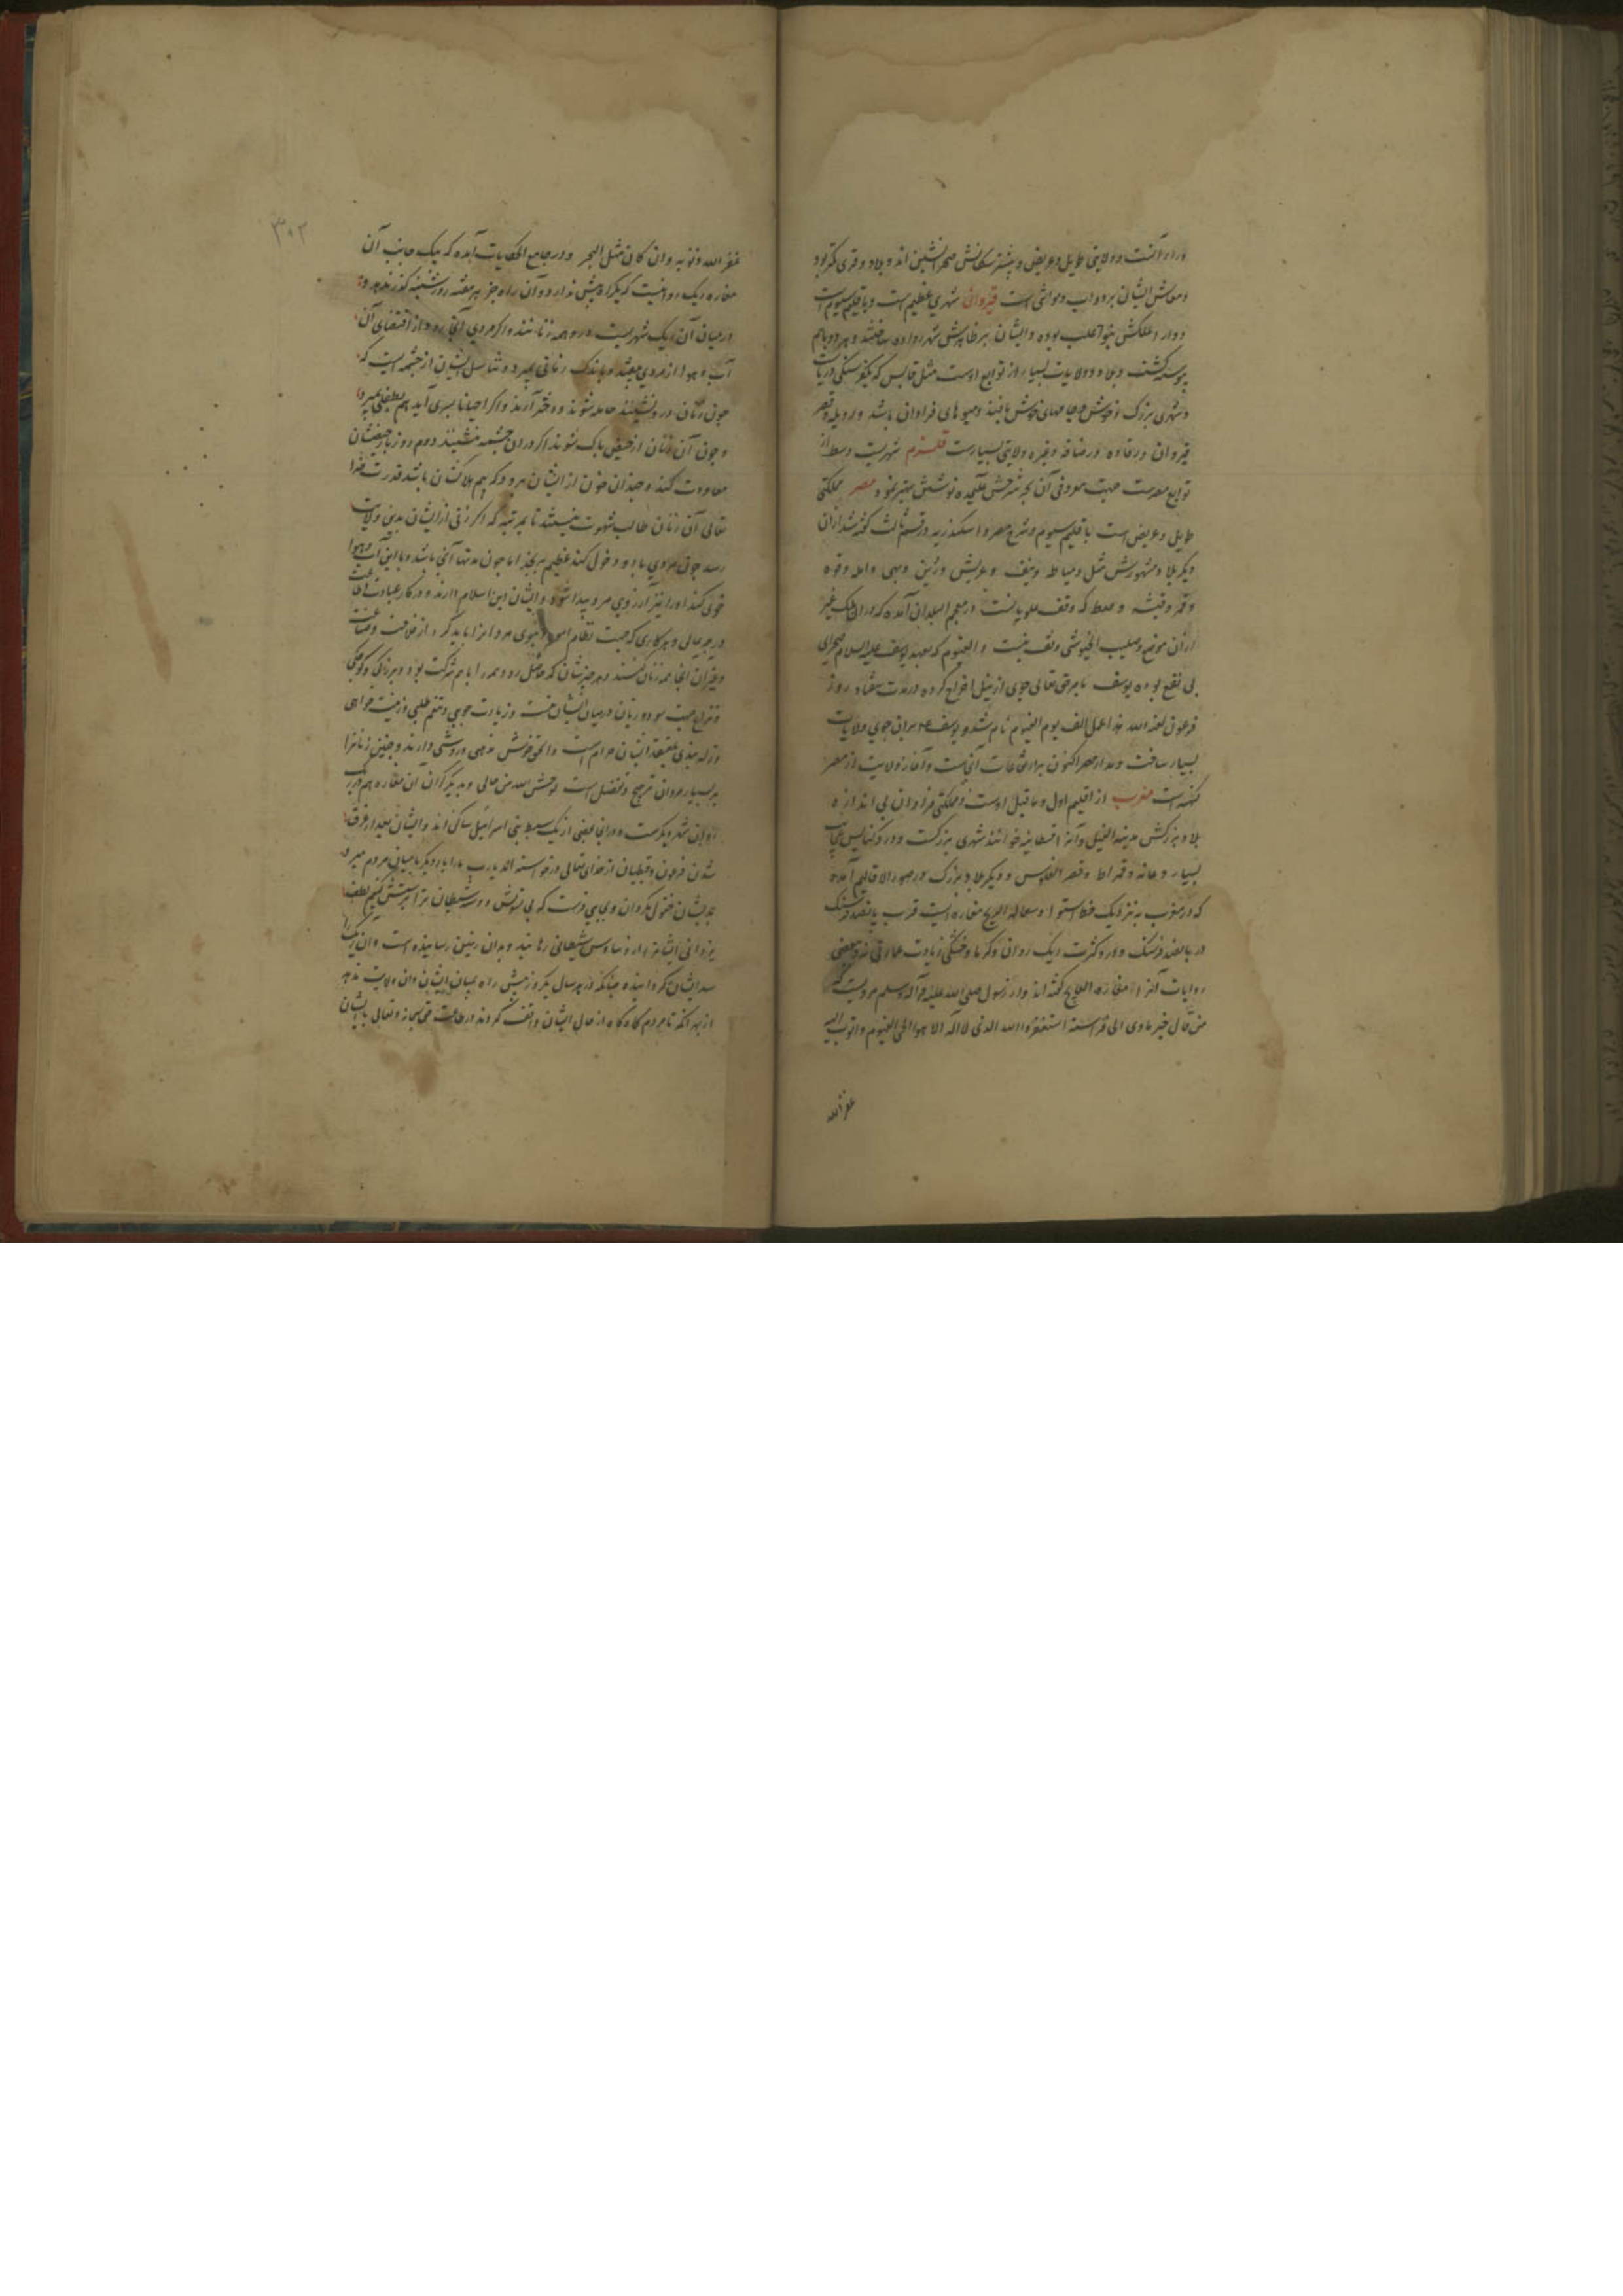 وراء آنست و ولایتی طویل و عریض و بیشتر سکانش صحرا نشین اند و بلاد و قری کمتر بود
و معاش ایشان بر دواب و مواشی است قیروان شهری عظیم است و باقلیم سیوم است
و دار الملکش بنو اغلب بوده و ایشان بر ظاهرش شهر رواده ساختند و هر دو باهم
پیوسته گشت و بلاد و ولایات بسیار از توابع اوست مثل قابس که بکفرسنگی دریاست
و شهری بزرگ و خوش و جامهای خوش بافند و میوهای فراوان باشد و زویله و قصر
قیروان و رقاده و رصافه و غیره ولایتی بسیارست قلزم شهریست وسط از
توابع مصرست جهت معروفی آن بحر شرحش علیحده نوشتن بهتر نمود مصر مملکتی
طویل و عریض است باقلیم سیوم و شرح مصر و اسکندریه در قسم ثالث گفته شد از آن
دیگر بلاد مشهورش مثل دمیاط و عریش
در معجم البلدان آمده که در آن ملک غیر
از آن موضع وقف نیست و الفیوم که بعهد یوسف علیه السلام صحرای
بی نفع بوده یوسف بامر حق تعالی جوی از نیل اخراج کرده در مدت هفتاد روز
فرعون لعنه الله هذا عمل الف یوم الفیوم نام شد و یوسف ع م بران جوی ولایات
بسیار ساخت و مدار مصر اکنون بر ارتفاعات آنجاست و آغاز ولایت از مصر
گفته است مغرب از اقلیم اول و ماقبل اوست و مملکتی فراوان بی اندازه
بلاد بزرگش مدینة النخیل و آنرا خوانند شهری بزرگست و درو کنایس عجایب
بسیار و دیگر بلاد بزرگ در صور الاقالیم آمده
که در مغرب به نزدیک خط استوا و مغازه است قرب پانصد فرسنگ
در پانصد فرسنگ و در و کثرت ریک روان و گرما و خشکی زیادت عمارتی نه و بعضی
روایات آنرا مغازه گفته اند و از رسول صلی الله علیه و آله و سلم مرویست که
من قال حین یاوی الی فراشه استغفر الله الذی لا اله الا هو الحی القیوم و اتوب الیه
غفر الله
۳۰۲
غفر الله ذنوبه و ان کان مثل البحر و در جامع الحکایات آمده که بیک جانب آن
مغازه ریک روانیست که یکراه بیش ندارد و آن راه جز بهر هفته روز شنبه گذر ندهد و
در میان آن ریک شهریست درو همه زنانند و اگر مردی آنجا رود از اقتضای آن
آب و هوا از مردی بیفتد و باندک زمانی بمیرد و تناسل ایشان از چشمه ایست که
چون زنان درو نشینند حامله شوند و دختر آرند و اگر احیانا پسری آید هم بطفلی بمیرد
و چون آن زنان از حیض پاک شوند اگر در آن چشمه ننشینند دوم روز باز حیضشان
معاودت کند و چندان خون از ایشان برود که بیم هلاکشان باشد قدرت خدا
تعالی آن زنان طالب شهوت نیستند تا بمرتبه که اگر زنی از ایشان بدین ولایت
رسد چون مردی با او دخول کند عظیم برنجد اما چون مدتها آنجا باشد و با این آب و هوا
خوی کند او را نیز آرزوی مرد پیدا شود و ایشان دین اسلام دارند و در کار عبادت
درجه عالی و هر کاری که جهت نظام امور دنیوی مردان را باید کرد از فلاحت و صناعت
و غیر آن آنجا همه زنان کنند و هر چیزشان که حاصل رود همه را باهم شرکت بود و هر بزرگی و کوچکی
و نزاع جهت سود و زیان در میان ایشان نیست و زیادت جویی و تنعم طلبی و زینت خواهی
و زله بندی بعقیده ایشان حرام است و الحق خوش مذهبی و روشی دارند و چنین زنانرا
بر بسیار مردان ترجیح و تفضل است خوش الله من حالی و بدیگر کران آن مغازه هم درین
راه آن شهر دیگرست و در آنجا بعضی از یک سبط بنی اسرائیل ساکن اند و ایشان بعد از غرق
شدن فرعون و قبطیان از خدای تعالی درخواسته اند یا رب ما را بار دیگر با میان مردم مبر و
بدیشان مشغول مگردان و بجایی فرست که بی تشویش و وسوسه شیطان ترا پرستش کنیم لطف
یزدانی ایشانرا از وساوس شیطانی رهانید و بدان زمین رسانیده است و آن ریک را
سد ایشان گردانیده چنانکه در هر سال یکروز بیش راه بمیان ایشان و آن ولایت ندهد
از بهر آنکه تا مردم گاه گاه از حال ایشان واقف گردند در طاعت حق سبحانه و تعالی با ایشان